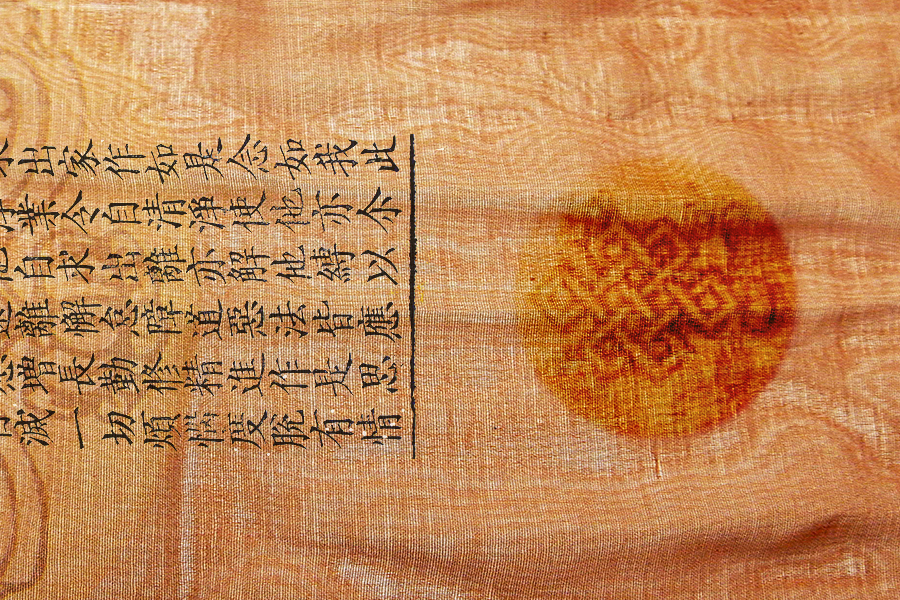 出家作如是念如我此
業令自清淨使他亦尒
自求出離亦解他縛以
離懈怠障道惡法皆應
增長勤修精進作是思
滅一切煩惱度脫有情